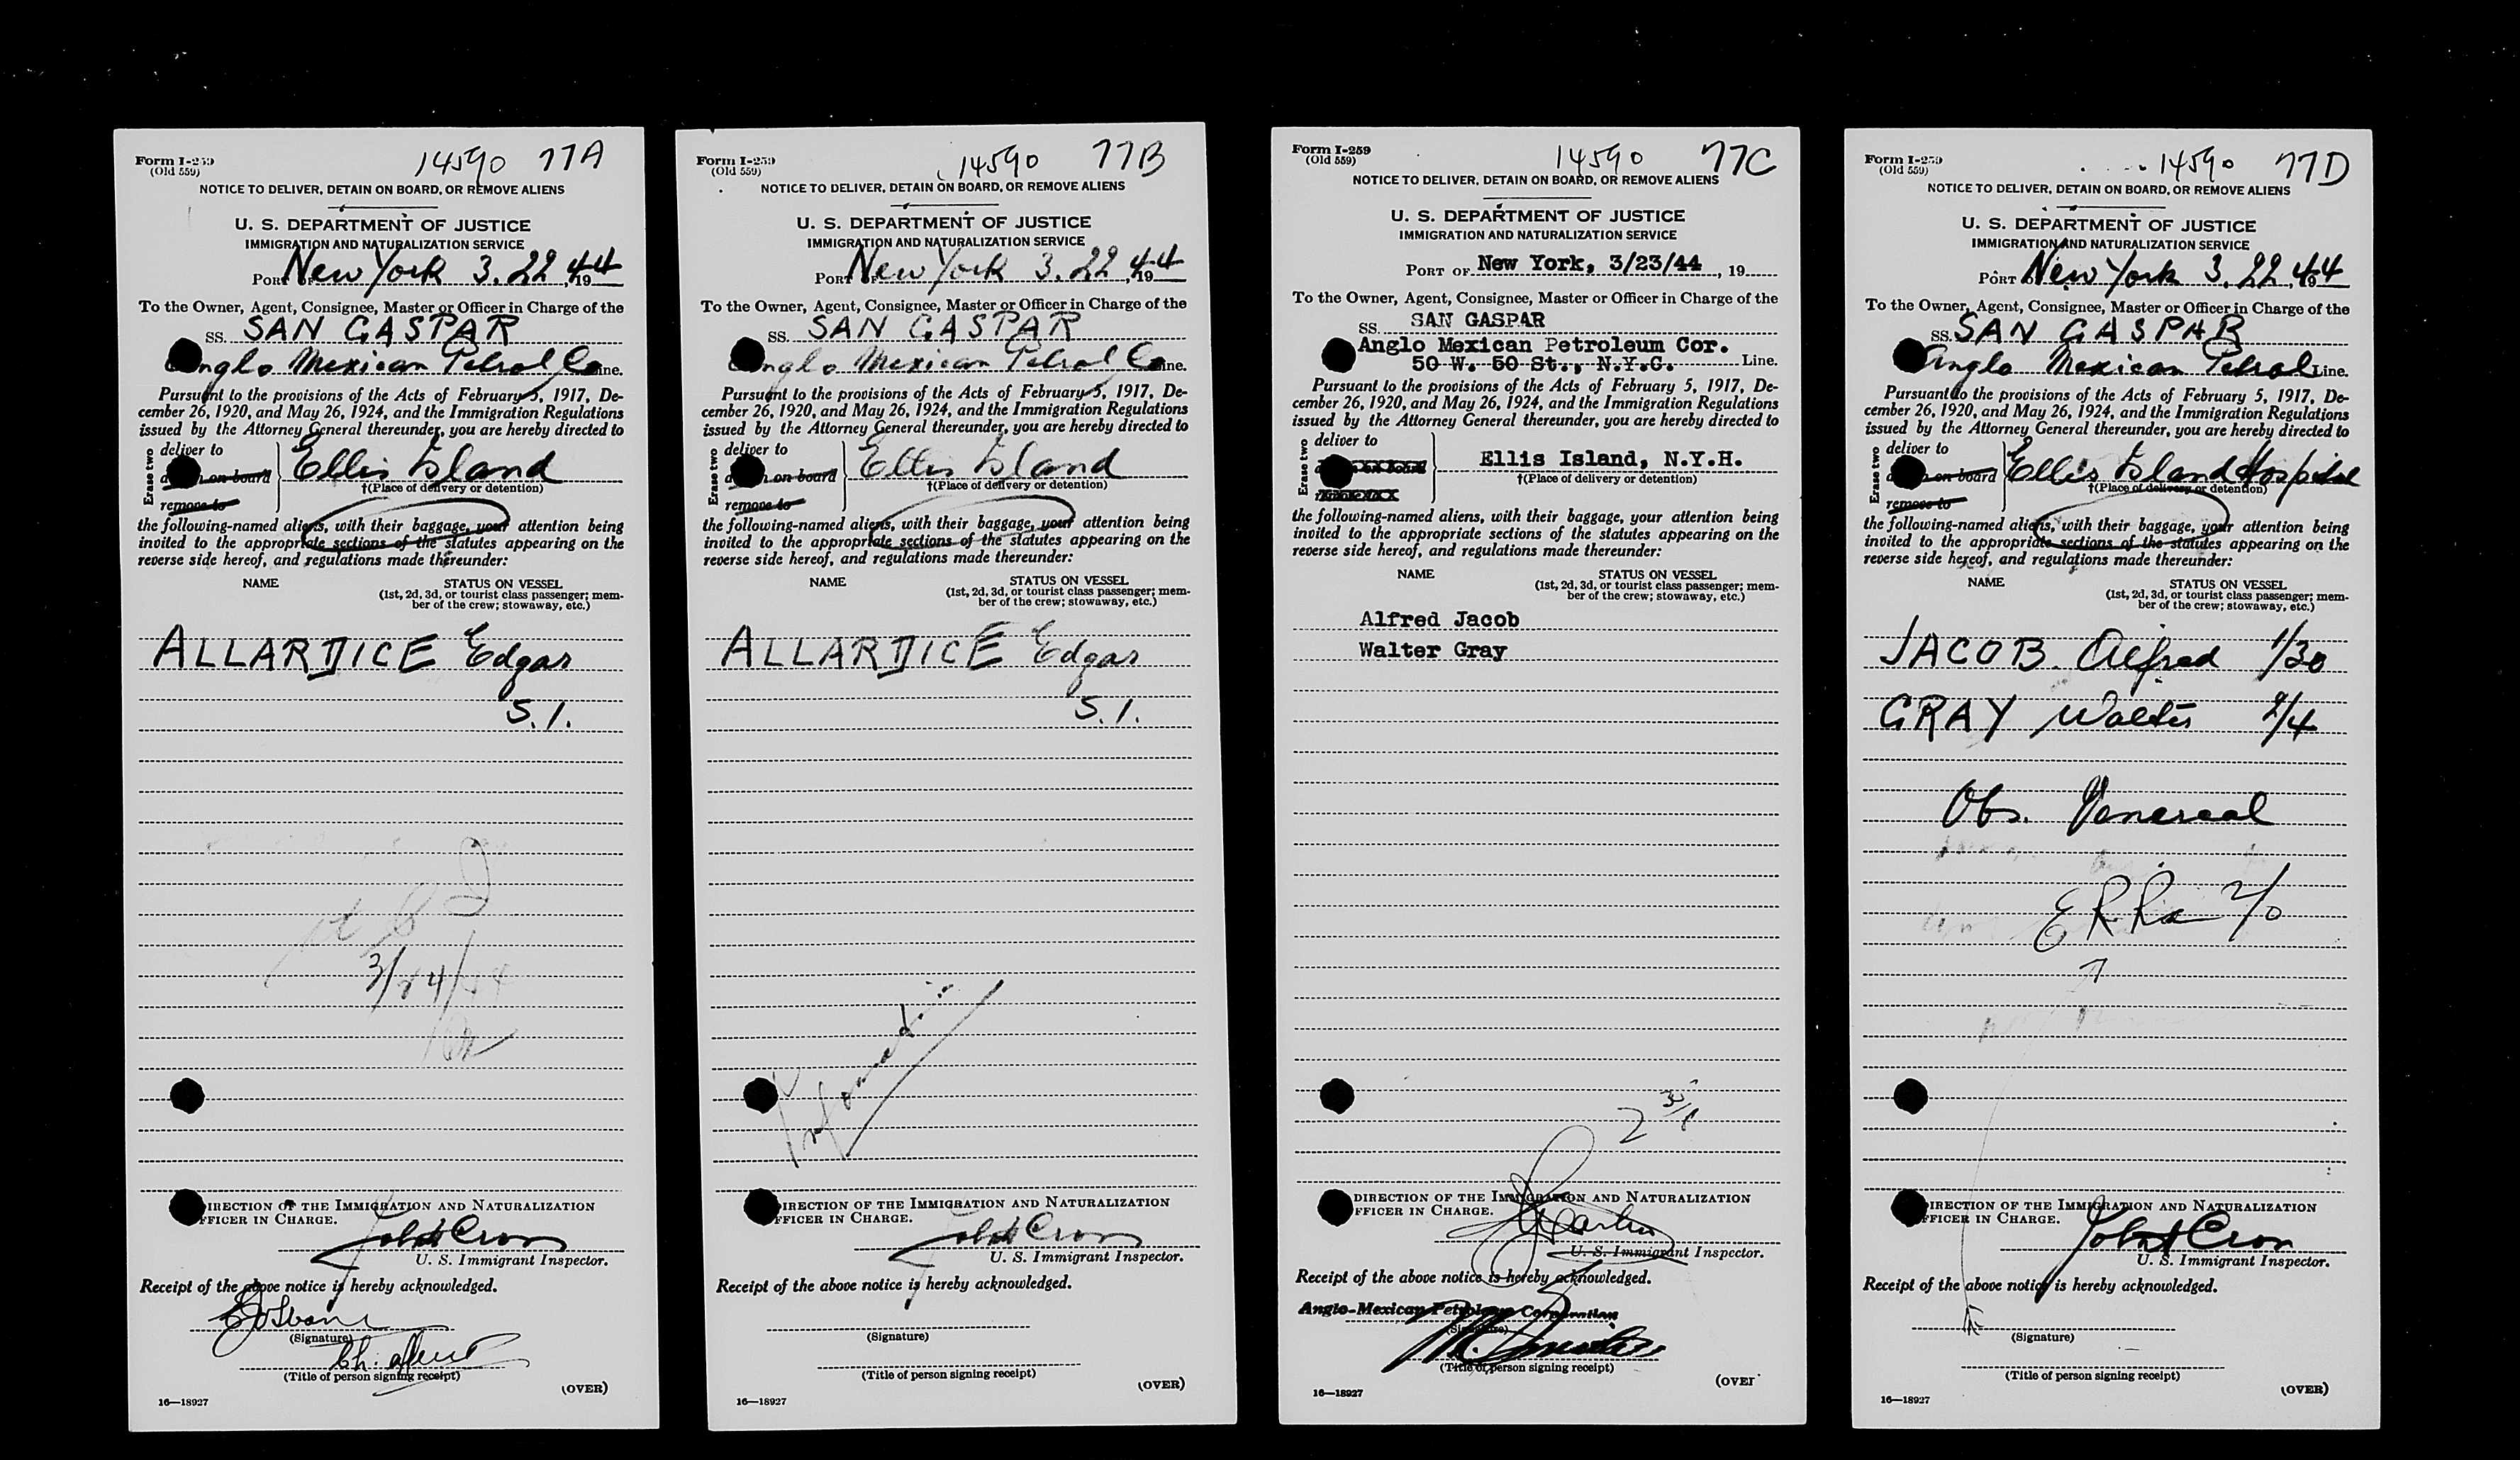 Form I-259
(Old 559)
14590 77A
NOTICE TO DELIVER, DETAIN ON BOARD, OR REMOVE ALIENS
U. S. DEPARTMENT OF JUSTICE
IMMIGRATION AND NATURALIZATION SERVICE
PORT OF New York 3.22, 1944
To the Owner, Agent, Consignee, Master or Officer in Charge of the
SS. SAN GASPAR
Anglo Mexican Petrol Co Line.
Pursuant to the provisions of the Acts of February 5, 1917, De-
cember 26, 1920, and May 26, 1924, and the Immigration Regulations
issued by the Attorney General thereunder, you are hereby directed to
Erase two
deliver to
on board
remove to
Ellis Island
†(Place of delivery or detention)
the following-named aliens, with their baggage, your attention being
invited to the appropriate sections of the statutes appearing on the
reverse side hereof, and regulations made thereunder:
NAME STATUS ON VESSEL
(1st, 2d, 3d, or tourist class passenger; mem-
ber of the crew; stowaway, etc.)
ALLARDICE Edgar
S.I.
DIRECTION OF THE IMMIGRATION AND NATURALIZATION
OFFICER IN CHARGE.
U. S. Immigrant Inspector.
Receipt of the above notice is hereby acknowledged.
(Signature)
(Title of person signing receipt)
(OVER)
16—18927
Form I-259
(Old 559)
14590 77B
NOTICE TO DELIVER, DETAIN ON BOARD, OR REMOVE ALIENS
U. S. DEPARTMENT OF JUSTICE
IMMIGRATION AND NATURALIZATION SERVICE
PORT OF New York 3.22, 1944
To the Owner, Agent, Consignee, Master or Officer in Charge of the
SS. SAN GASPAR
Anglo Mexican Petrol Co Line.
Pursuant to the provisions of the Acts of February 5, 1917, De-
cember 26, 1920, and May 26, 1924, and the Immigration Regulations
issued by the Attorney General thereunder, you are hereby directed to
Erase two
deliver to
on board
remove to
Ellis Island
†(Place of delivery or detention)
the following-named aliens, with their baggage, your attention being
invited to the appropriate sections of the statutes appearing on the
reverse side hereof, and regulations made thereunder:
NAME STATUS ON VESSEL
(1st, 2d, 3d, or tourist class passenger; mem-
ber of the crew; stowaway, etc.)
ALLARDICE Edgar
S.I.
DIRECTION OF THE IMMIGRATION AND NATURALIZATION
OFFICER IN CHARGE.
U. S. Immigrant Inspector.
Receipt of the above notice is hereby acknowledged.
(Signature)
(Title of person signing receipt)
(OVER)
16—18927
Form I-259
(Old 559)
14590 77C
NOTICE TO DELIVER, DETAIN ON BOARD, OR REMOVE ALIENS
U. S. DEPARTMENT OF JUSTICE
IMMIGRATION AND NATURALIZATION SERVICE
PORT OF New York, 3/23/44, 19
To the Owner, Agent, Consignee, Master or Officer in Charge of the
SS. SAN GASPAR
Anglo Mexican Petroleum Cor.
50 W. 50 St., N.Y.C. Line.
Pursuant to the provisions of the Acts of February 5, 1917, De-
cember 26, 1920, and May 26, 1924, and the Immigration Regulations
issued by the Attorney General thereunder, you are hereby directed to
Erase two
deliver to
Ellis Island, N.Y.H.
†(Place of delivery or detention)
the following-named aliens, with their baggage, your attention being
invited to the appropriate sections of the statutes appearing on the
reverse side hereof, and regulations made thereunder:
NAME STATUS ON VESSEL
(1st, 2d, 3d, or tourist class passenger; mem-
ber of the crew; stowaway, etc.)
Alfred Jacob
Walter Gray
DIRECTION OF THE IMMIGRATION AND NATURALIZATION
OFFICER IN CHARGE.
U. S. Immigrant Inspector.
Receipt of the above notice is hereby acknowledged.
Anglo-Mexican Petroleum Corporation
(Signature)
(Title of person signing receipt)
(OVER
16—18927
Form I-259
(Old 559)
14590 77D
NOTICE TO DELIVER, DETAIN ON BOARD, OR REMOVE ALIENS
U. S. DEPARTMENT OF JUSTICE
IMMIGRATION AND NATURALIZATION SERVICE
PORT OF New York 3.22, 1944
To the Owner, Agent, Consignee, Master or Officer in Charge of the
SS. SAN GASPAR
Anglo Mexican Petrol Line.
Pursuant to the provisions of the Acts of February 5, 1917, De-
cember 26, 1920, and May 26, 1924, and the Immigration Regulations
issued by the Attorney General thereunder, you are hereby directed to
Erase two
deliver to
on board
remove to
Ellis Island Hospital
†(Place of delivery or detention)
the following-named aliens, with their baggage, your attention being
invited to the appropriate sections of the statutes appearing on the
reverse side hereof, and regulations made thereunder:
NAME STATUS ON VESSEL
(1st, 2d, 3d, or tourist class passenger; mem-
ber of the crew; stowaway, etc.)
JACOB. Alfred 1/30
GRAY Walter 2/4
Obs. Venereal
DIRECTION OF THE IMMIGRATION AND NATURALIZATION
OFFICER IN CHARGE.
U. S. Immigrant Inspector.
Receipt of the above notice is hereby acknowledged.
(Signature)
(Title of person signing receipt)
(OVER)
16—18927